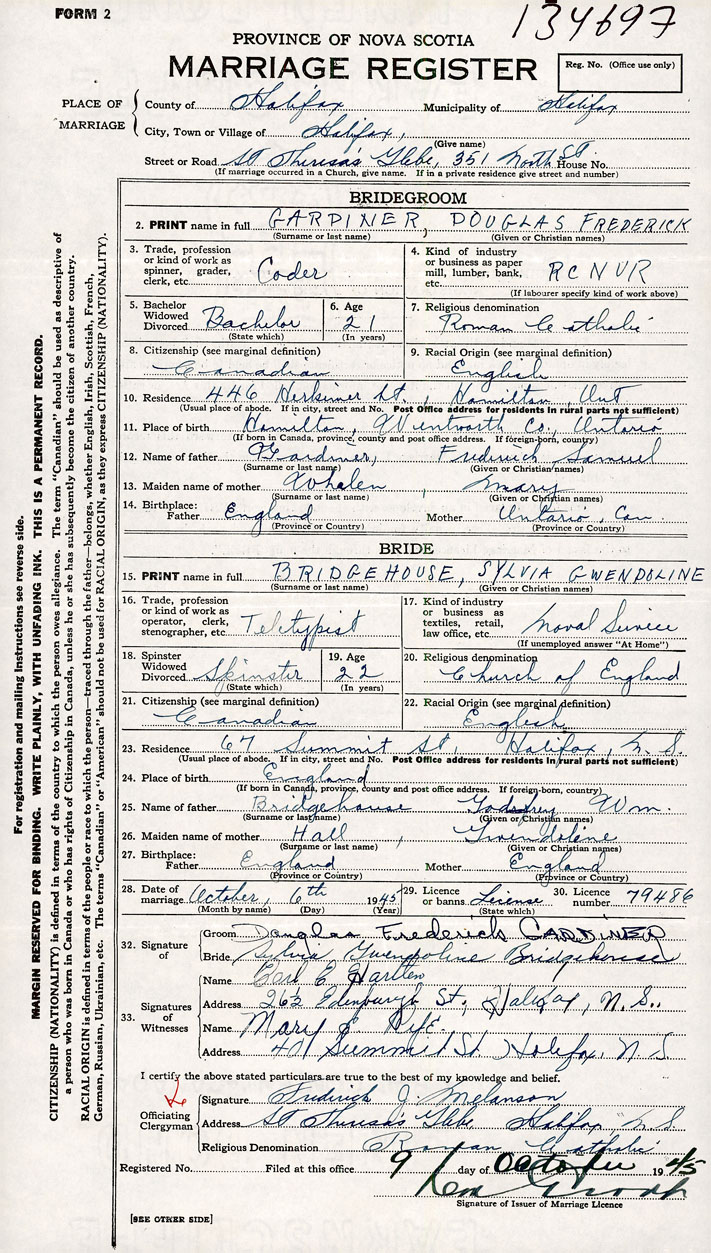 FORM 2
134697
PROVINCE OF NOVA SCOTIA
MARRIAGE REGISTER
Reg. No. (Office use only)
PLACE OF MARRIAGE
County of Halifax Municipality of Halifax
City, Town or Village of Halifax,
(Give name)
Street or Road St Theresa's Glebe, 351 North St. House No.
(If marriage occurred in a Church, give name. If in a private residence give street and number)
BRIDEGROOM
2. PRINT name in full GARDINER, DOUGLAS FREDERICK
(Surname or last name) (Given or Christian names)
3. Trade, profession or kind of work as spinner, grader, clerk, etc. Coder
4. Kind of industry or business as paper mill, lumber, bank, etc. RCNVR
(If labourer specify kind of work above)
5. Bachelor Widowed Divorced Bachelor
(State which)
6. Age 21
(In years)
7. Religious denomination Roman Catholic
8. Citizenship (see marginal definition) Canadian
9. Racial Origin (see marginal definition) English
10. Residence 446 Herkimer St., Hamilton, Ont
(Usual place of abode. If in city, street and No. Post Office address for residents in rural parts not sufficient)
11. Place of birth Hamilton, Wentworth Co., Ontario
(If born in Canada, province, county and post office address. If foreign-born, country)
12. Name of father Gardiner, Frederick Samuel
(Surname or last name) (Given or Christian names)
13. Maiden name of mother Whalen, Mary
(Surname or last name) (Given or Christian names)
14. Birthplace: Father England Mother Ontario, Can
(Province or Country) (Province or Country)
BRIDE
15. PRINT name in full BRIDGEHOUSE, SYLVIA GWENDOLINE
(Surname or last name) (Given or Christian names)
16. Trade, profession or kind of work as operator, clerk, stenographer, etc. Teletypist
17. Kind of industry or business as textiles, retail, law office, etc. Naval Service
(If unemployed answer "At Home")
18. Spinster Widowed Divorced Spinster
(State which)
19. Age 22
(In years)
20. Religious denomination Church of England
21. Citizenship (see marginal definition) Canadian
22. Racial Origin (see marginal definition) English
23. Residence 67 Summit St. Halifax, N.S.
(Usual place of abode. If in city, street and No. Post Office address for residents in rural parts not sufficient)
24. Place of birth England
(If born in Canada, province, county and post office address. If foreign-born, country)
25. Name of father Bridgehouse Godfrey Wm.
(Surname or last name) (Given or Christian names)
26. Maiden name of mother Hall, Gwendoline
(Surname or last name) (Given or Christian names)
27. Birthplace: Father England Mother England
(Province or Country) (Province or Country)
28. Date of marriage October, 6th 1945
(Month by name) (Day) (Year)
29. Licence or banns License
(State which)
30. Licence number 79486
32. Signature of
Groom Douglas Frederick GARDINER
Bride Sylvia Gwendoline Bridgehouse
33. Signatures of Witnesses
Name E Hartlen
Address 262 Edinburgh St, Halifax, N.S.
Name Mary E. Pye
Address 401 Summit St. Halifax, N.S
I certify the above stated particulars are true to the best of my knowledge and belief.
Officiating Clergyman
Signature Fredrick J. Melanson
Address St Theresa's Glebe Halifax N.S
Religious Denomination Roman Catholic
Registered No. Filed at this office 9 day of October 1945
Signature of Issuer of Marriage Licence
[SEE OTHER SIDE]
For registration and mailing instructions see reverse side.
MARGIN RESERVED FOR BINDING. WRITE PLAINLY, WITH UNFADING INK. THIS IS A PERMANENT RECORD.
CITIZENSHIP (NATIONALITY) is defined in terms of the country to which the person owes allegiance. The term "Canadian" should be used as descriptive of
a person who was born in Canada or who has rights of Citizenship in Canada, unless he or she has subsequently become the citizen of another country.
RACIAL ORIGIN is defined in terms of the people or race to which the person—traced through the father—belongs, whether English, Irish, Scottish, French,
German, Russian, Ukrainian, etc. The terms "Canadian" or "American" should not be used for RACIAL ORIGIN, as they express CITIZENSHIP (NATIONALITY).